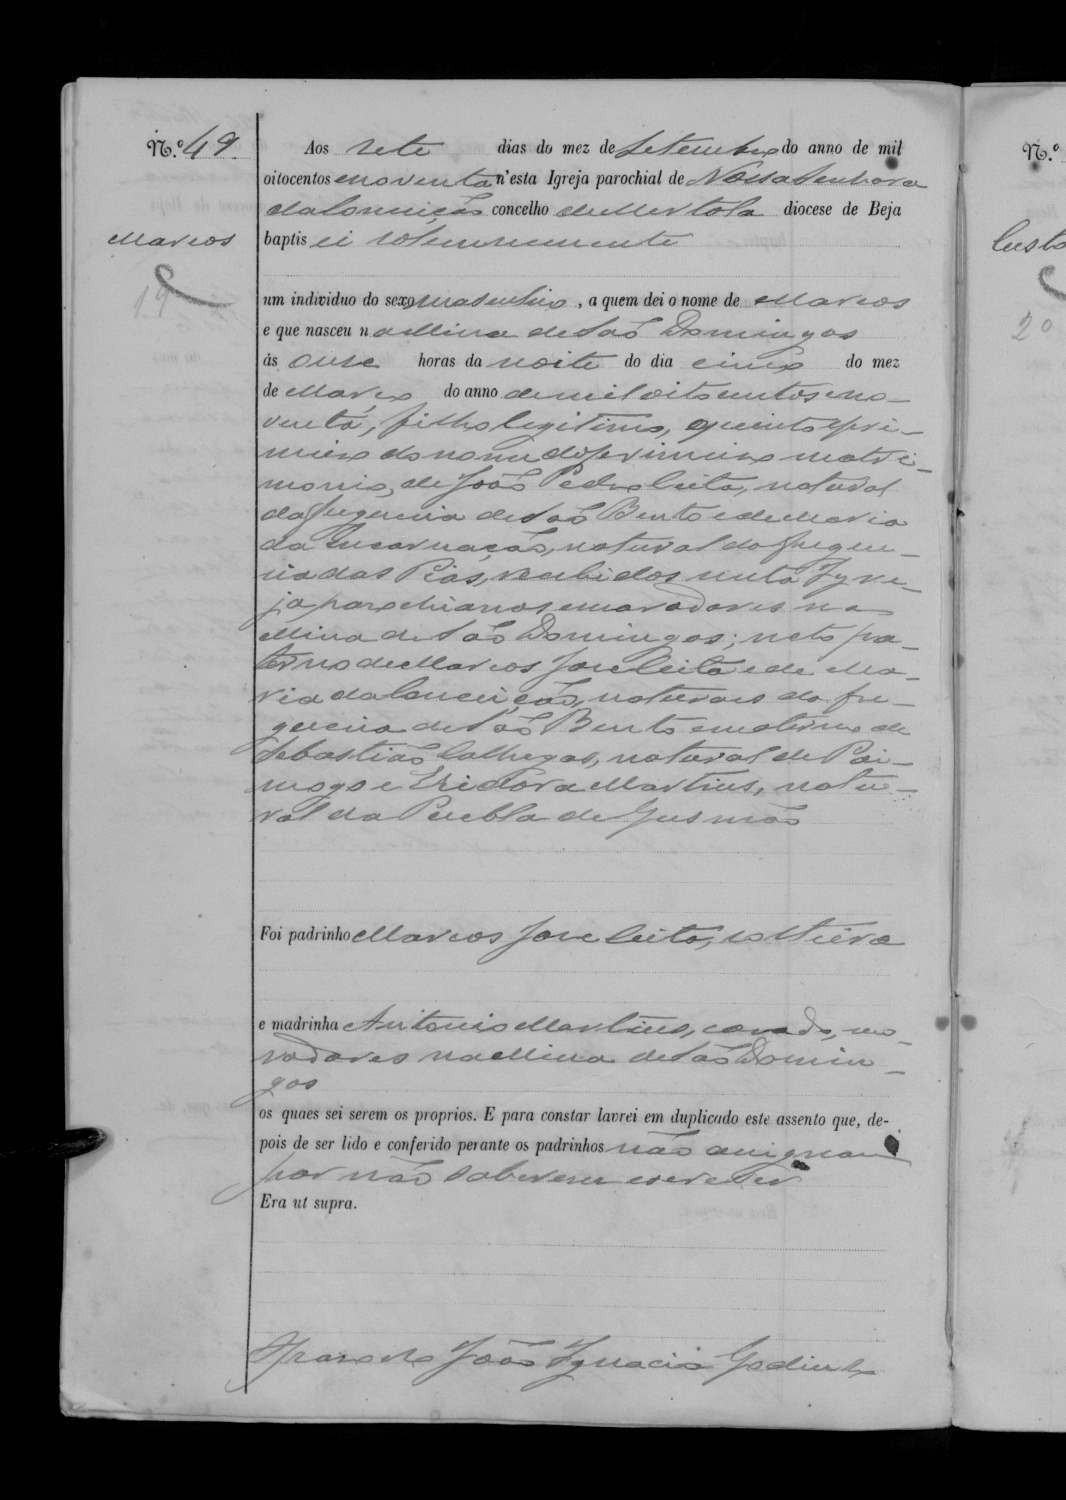 N.º 49.
Aos sete dias do mez de Setembro do anno de mil
oitocentos e noventa n'esta Igreja parochial de Nossa Senhora
da Conceição concelho de Mertola diocese de Beja
Marcos
baptisei solemnemente
19
um individuo do sexo masculino, a quem dei o nome de Marcos
e que nasceu na Mina de São Domingos
ás onse horas da noite do dia cinco do mez
de Março do anno de mil oito centos e no-
venta, filho legitimo, quinto e pri-
meiro do nome do primeiro matri-
monio, de João Pedro Leita, natural
da freguesia de São Bento e de Maria
da Encarnação, natural da fregue-
sia das Pias, recebidos nesta Igre-
ja parochianos e moradores na
Mina de São Domingos; neto pa-
terno de Marcos Jose Leita e de Ma-
ria da Conceição, naturaes da fre-
guesia de São Bento e materno de
Sebastião Calhegas, natural de Pai-
mogo e Izidora Martins, natu-
ral da Puebla de Gusmão
Foi padrinho Marcos Jose Leita, solteiro
e madrinha Antonio Martins, casado, mo-
radores na Mina de São Domin-
gos
os quaes sei serem os proprios. E para constar lavrei em duplicado este assento que, de-
pois de ser lido e conferido perante os padrinhos não assignam
por não saberem escrever
Era ut supra.
O Parocho João Ignacio Godinho
N.º
Custo
20